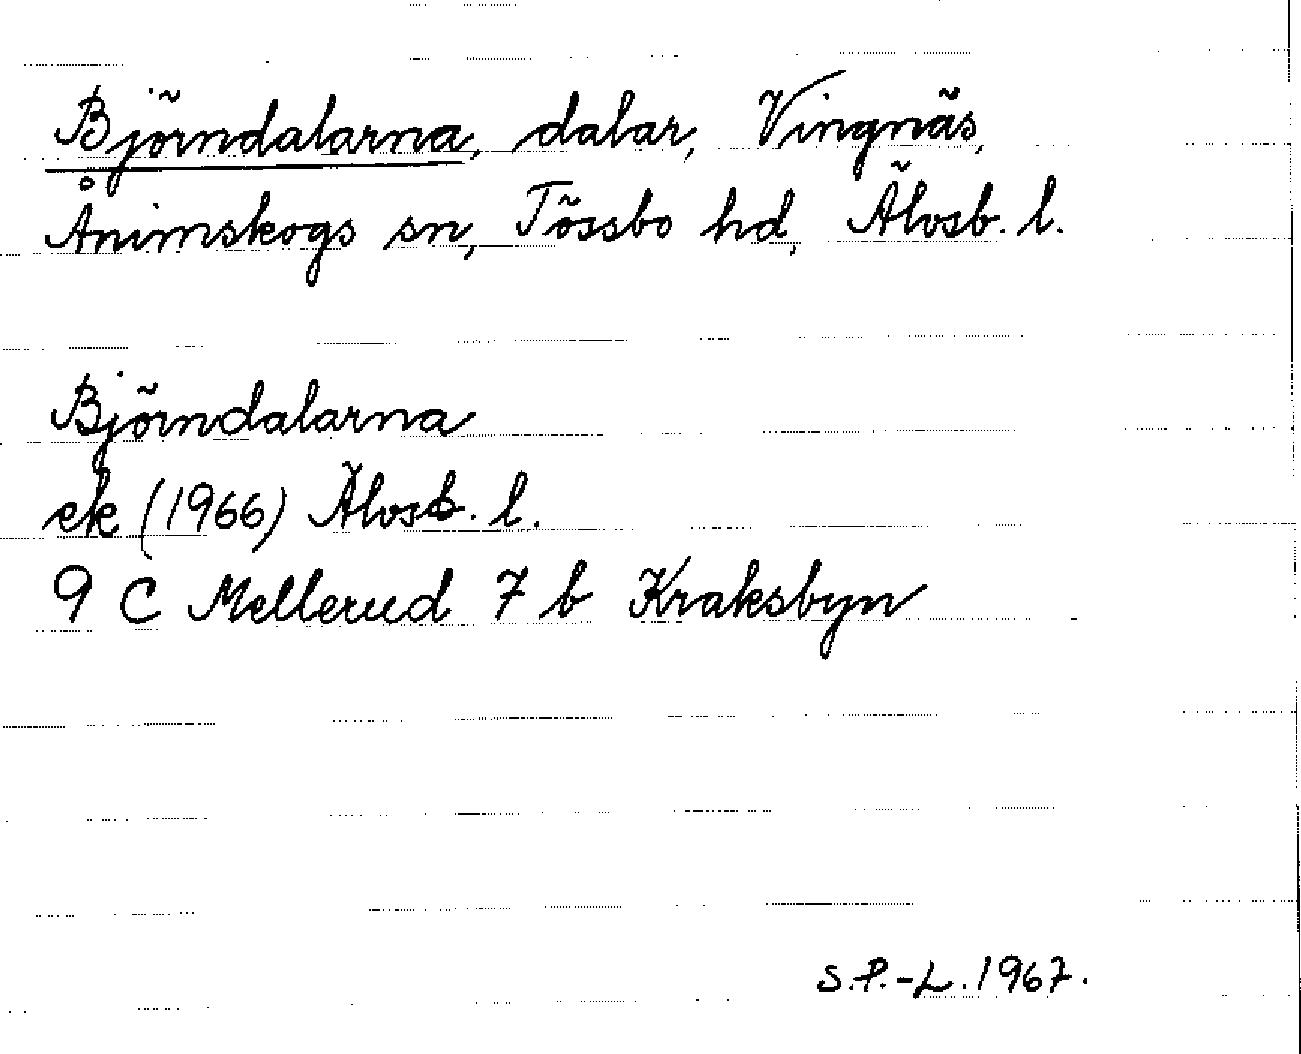 Björndalarna, dalar, Vingnäs,
Ånimskogs sn, Tössbo hd, Älvsb. l.
Björndalarna
ek (1966) Älvsb. l.
9 C Mellerud 7 b Kraksbyn
S.P.-L. 1967.